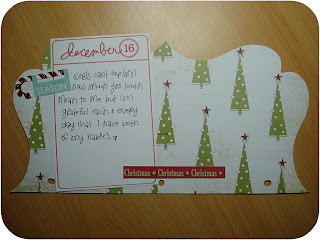 december 16
SEASON
Words can't explain
how much you both
mean to me but i'm
grateful each & every
day that i have both
of my babies
Christmas * Christmas * Christmas *